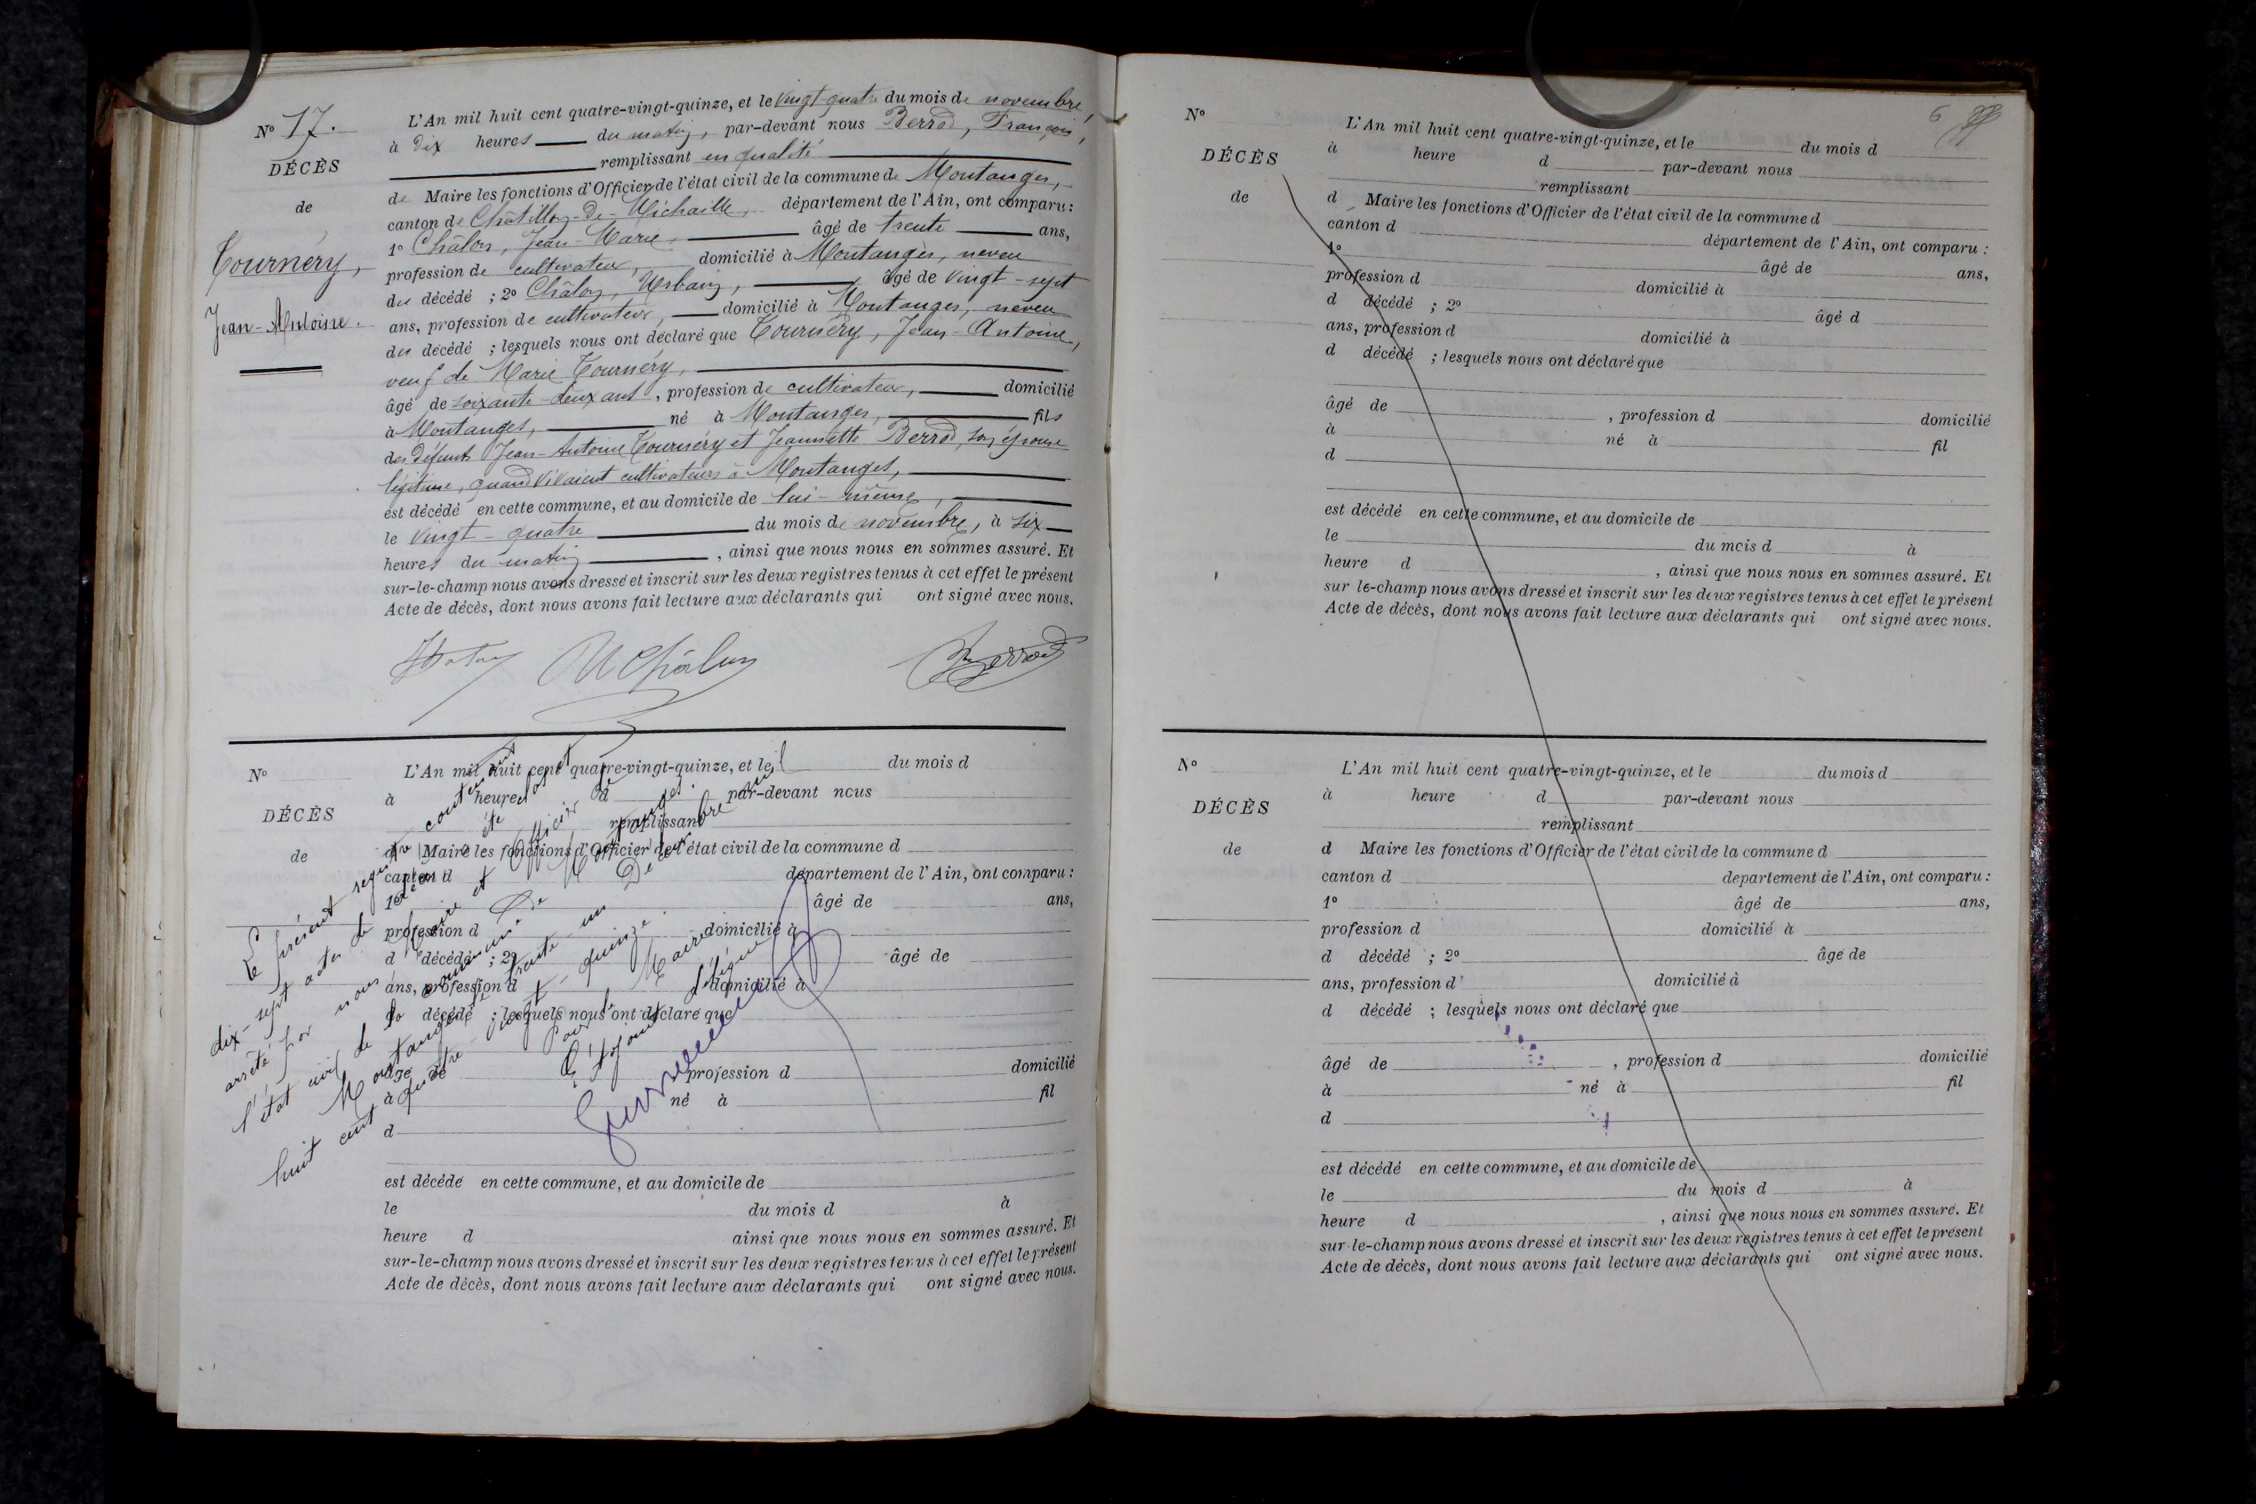 N° 17.
DÉCÈS
de
Tournéry,
Jean-Antoine.
L'An mil huit cent quatre-vingt-quinze, et le vingt-quatre du mois de novembre,
à dix heures du matin, par-devant nous Berrod, François,
remplissant en qualité
de Maire les fonctions d'Officier de l'état civil de la commune de Montanges,
canton de Châtillon-de-Michaille, département de l'Ain, ont comparu :
1° Châlon, Jean-Marie, âgé de trente ans,
profession de cultivateur, domicilié à Montanges, neveu
du décédé ; 2° Châlon, Urbain, âgé de vingt-sept
ans, profession de cultivateur, domicilié à Montanges, neveu
du décédé ; lesquels nous ont déclaré que Tournéry, Jean-Antoine,
veuf de Marie Tournéry,
âgé de soixante-deux ans, profession de cultivateur, domicilié
à Montanges, né à Montanges, fils
des défunts Jean-Antoine Tournéry et Jeannette Berrod, son épouse
légitime, quand vivaient cultivateurs à Montanges,
est décédé en cette commune, et au domicile de lui-même,
le vingt-quatre du mois de novembre, à six
heures du matin, ainsi que nous nous en sommes assuré. Et
sur-le-champ nous avons dressé et inscrit sur les deux registres tenus à cet effet le présent
Acte de décès, dont nous avons fait lecture aux déclarants qui ont signé avec nous.
U Châlon Berrod
N°
DÉCÈS
de
L'An mil huit cent quatre-vingt-quinze, et le du mois d
à heure d par-devant nous
remplissant
d Maire les fonctions d'Officier de l'état civil de la commune d
canton d département de l'Ain, ont comparu :
1° âgé de ans,
profession d domicilié à
d décédé ; 2° âgé de
ans, profession d domicilié à
d décédé ; lesquels nous ont déclaré que
âgé de profession d domicilié
à né à fil
d
est décédé en cette commune, et au domicile de
le du mois d à
heure d ainsi que nous nous en sommes assuré. Et
sur-le-champ nous avons dressé et inscrit sur les deux registres tenus à cet effet le présent
Acte de décès, dont nous avons fait lecture aux déclarants qui ont signé avec nous.
Le présent registre contenant
dix-sept actes de décès a été clos et
arrêté par nous Maire et Officier de
l'état civil de la commune de Montanges.
Montanges, le trente-un Décembre mil
huit cent quatre-vingt-quinze.
Pour le Maire
L'Adjoint délégué
6
N°
DÉCÈS
de
L'An mil huit cent quatre-vingt-quinze, et le du mois d
à heure d par-devant nous
remplissant
d Maire les fonctions d'Officier de l'état civil de la commune d
canton d département de l'Ain, ont comparu :
1° âgé de ans,
profession d domicilié à
d décédé ; 2° âgé d
ans, profession d domicilié à
d décédé ; lesquels nous ont déclaré que
âgé de , profession d domicilié
à né à fil
d
est décédé en cette commune, et au domicile de
le du mois d à
heure d , ainsi que nous nous en sommes assuré. Et
sur le-champ nous avons dressé et inscrit sur les deux registres tenus à cet effet le présent
Acte de décès, dont nous avons fait lecture aux déclarants qui ont signé avec nous.
N°
DÉCÈS
de
L'An mil huit cent quatre-vingt-quinze, et le du mois d
à heure d par-devant nous
remplissant
d Maire les fonctions d'Officier de l'état civil de la commune d
canton d département de l'Ain, ont comparu :
1° âgé de ans,
profession d domicilié à
d décédé ; 2° âge de
ans, profession d domicilié à
d décédé ; lesquels nous ont déclaré que
âgé de , profession d domicilié
à né à fil
d
est décédé en cette commune, et au domicile de
le du mois d à
heure d , ainsi que nous nous en sommes assuré. Et
sur-le-champ nous avons dressé et inscrit sur les deux registres tenus à cet effet le présent
Acte de décès, dont nous avons fait lecture aux déclarants qui ont signé avec nous.